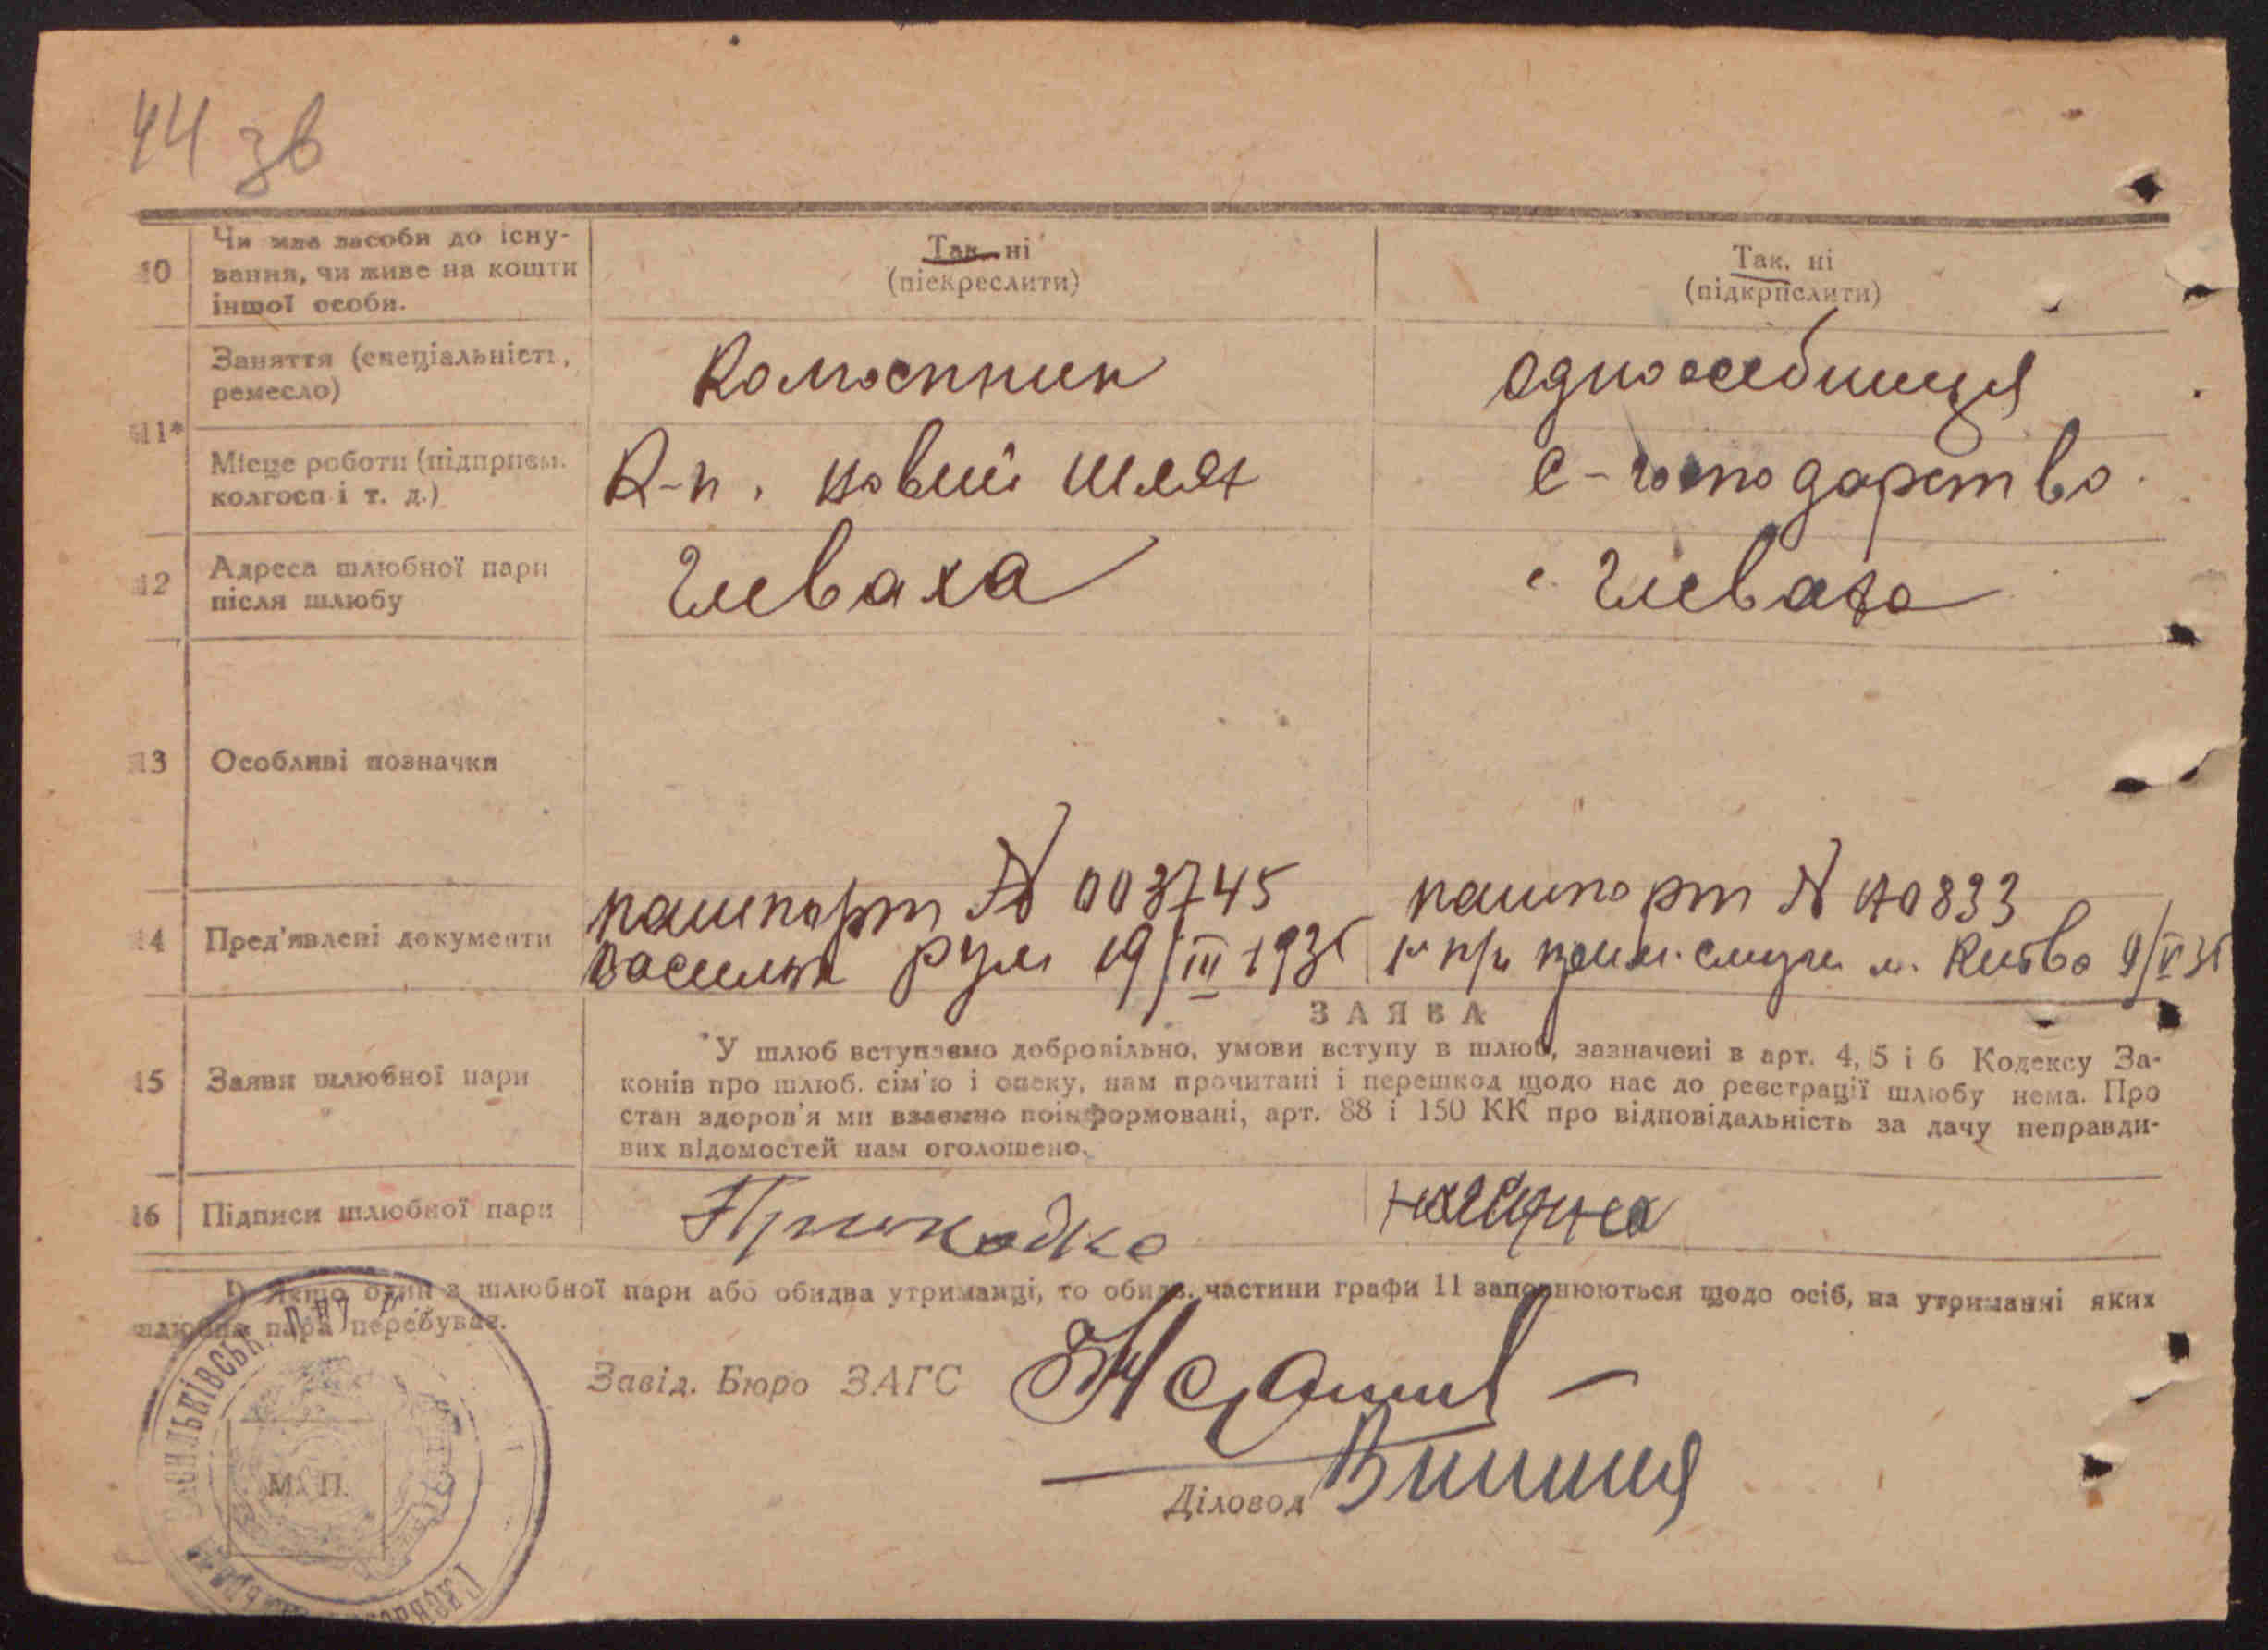 44 зв
10 Чи має засоби до існу- Так. ні Так. ні
вання, чи живе на кошти (піекреслити) (підкрпслити)
іншої особи.
Заняття (спеціальність, Колгоспник одноосебниця
ремесло)
11*
Місце роботи (підприєм. К-п. новий шлях С-господарство
колгосп і т. д.)
12 Адреса шлюбної пари Глеваха с. Глеваха
після шлюбу
13 Особливі позначки
14 Пред'явлені документи пашпорт № 003745 пашпорт №
19/III 193 м. Києва 9/V 3
ЗАЯВА
15 Заяви шлюбної пари У шлюб вступаємо добровільно, умови вступу в шлюб, зазначені в арт. 4, 5 і 6 Кодексу За-
конів про шлюб. сім'ю і опеку, нам прочитані і перешкод щодо нас до реєстрації шлюбу нема. Про
стан здоров'я ми взаємно поінформовані, арт. 88 і 150 КК про відповідальність за дачу неправди-
вих відомостей нам оголошено.
16 Підписи шлюбної пари Приходко
1) Якщо один з шлюбної пари або обидва утриманці, то обидв. частини графи 11 заповнюються щодо осіб, на утриманні яких
шлюбна пара перебуває.
Завід. Бюро ЗАГС
М. П.
Діловод